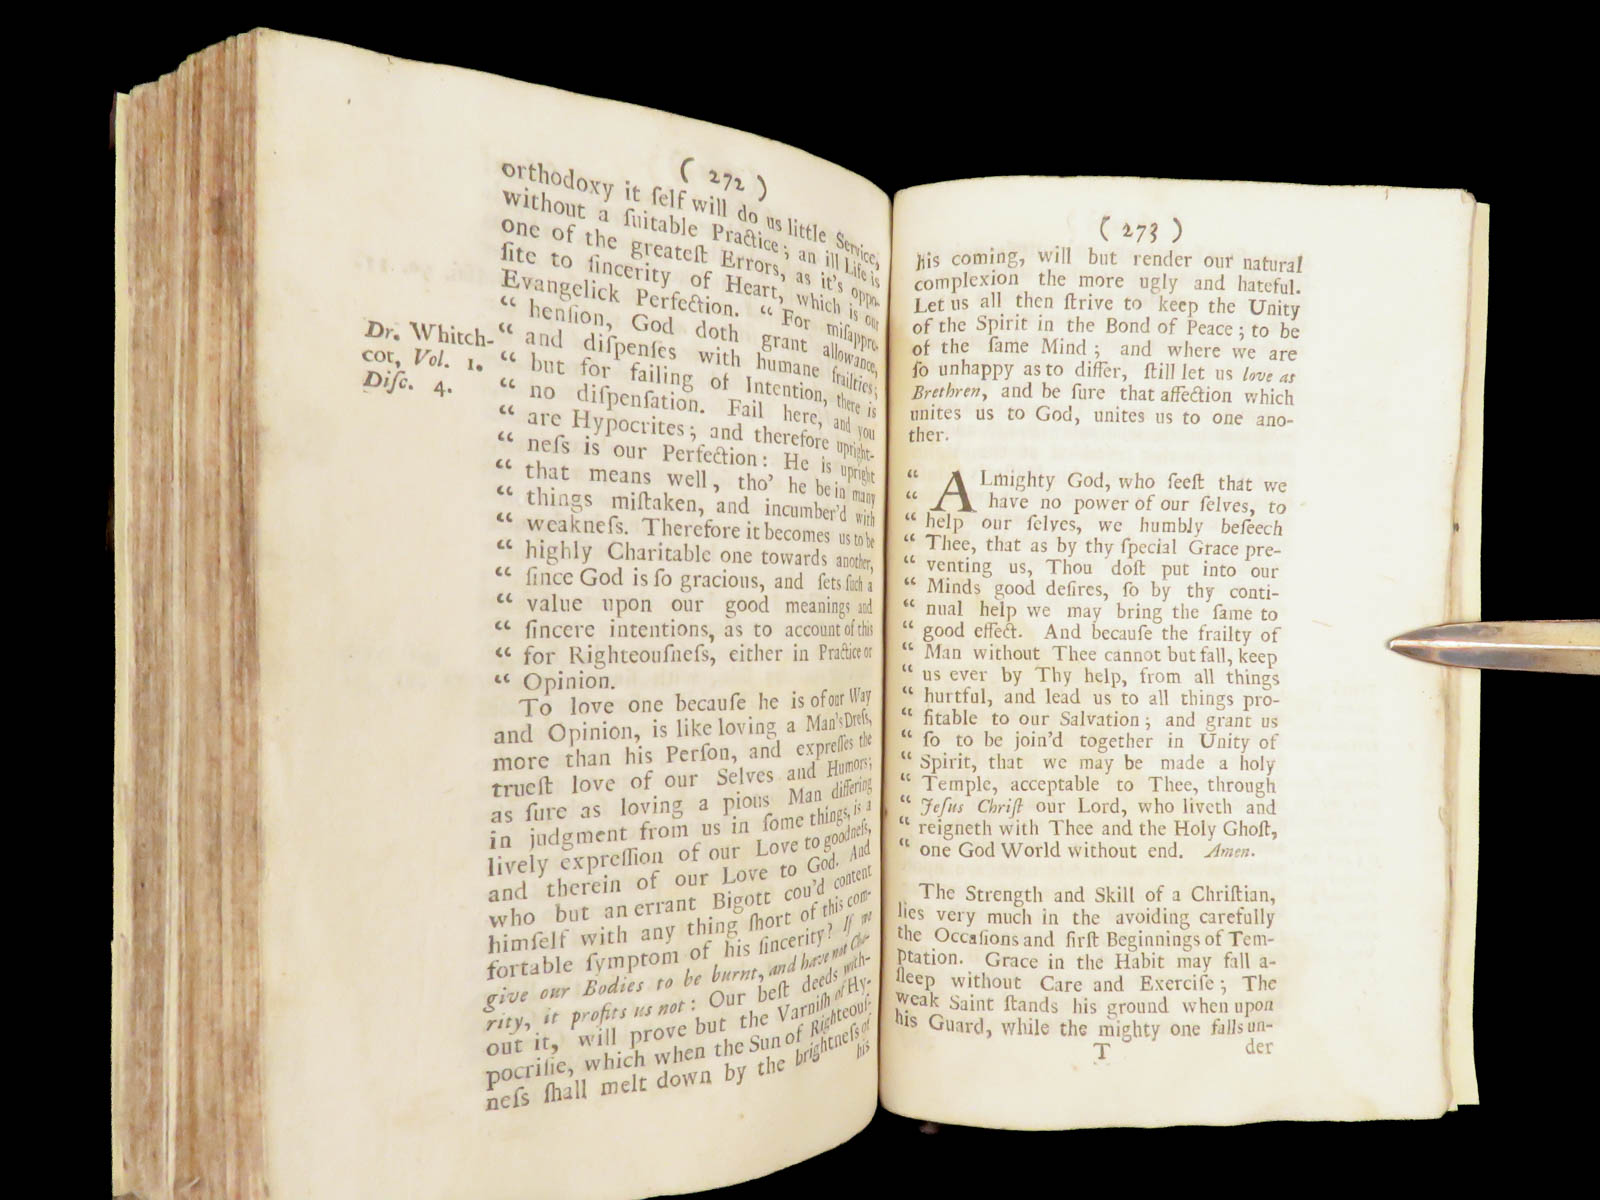 ( 272 )
orthodoxy it ſelf will do us little Service,
without a ſuitable Practice; an ill Life is
one of the greateſt Errors, as it's oppo-
ſite to ſincerity of Heart, which is our
Evangelick Perfection. “ For miſappre-
“ henſion, God doth grant allowance,
“ and diſpenſes with humane frailties;
“ but for failing of Intention, there is
“ no diſpenſation. Fail here, and you
“ are Hypocrites; and therefore upright-
“ neſs is our Perfection: He is upright
“ that means well, tho' he be in many
“ things miſtaken, and incumber'd with
“ weakneſs. Therefore it becomes us to be
“ highly Charitable one towards another,
“ ſince God is ſo gracious, and ſets ſuch a
“ value upon our good meanings and
“ ſincere intentions, as to account of this
“ for Righteouſneſs, either in Practice or
“ Opinion.
Dr. Whitch-
cot, Vol. 1.
Diſc. 4.
To love one becauſe he is of our Way
and Opinion, is like loving a Man's Dreſs,
more than his Perſon, and expreſſes the
trueſt love of our Selves and Humors;
as ſure as loving a pious Man differing
in judgment from us in ſome things, is a
lively expreſſion of our Love to goodneſs,
and therein of our Love to God. And
who but an errant Bigott cou'd content
himſelf with any thing ſhort of this com-
fortable ſymptom of his ſincerity? If we
give our Bodies to be burnt, and have not Cha-
rity, it profits us not: Our beſt deeds with-
out it, will prove but the Varniſh of Hy-
pocriſie, which when the Sun of Righteouſ-
neſs ſhall melt down by the brightneſs of
his
( 273 )
his coming, will but render our natural
complexion the more ugly and hateful.
Let us all then ſtrive to keep the Unity
of the Spirit in the Bond of Peace; to be
of the ſame Mind; and where we are
ſo unhappy as to differ, ſtill let us love as
Brethren, and be ſure that affection which
unites us to God, unites us to one ano-
ther.
“ ALmighty God, who ſeeſt that we
“ have no power of our ſelves, to
“ help our ſelves, we humbly beſeech
“ Thee, that as by thy ſpecial Grace pre-
“ venting us, Thou doſt put into our
“ Minds good deſires, ſo by thy conti-
“ nual help we may bring the ſame to
“ good effect. And becauſe the frailty of
“ Man without Thee cannot but fall, keep
“ us ever by Thy help, from all things
“ hurtful, and lead us to all things pro-
“ fitable to our Salvation; and grant us
“ ſo to be join'd together in Unity of
“ Spirit, that we may be made a holy
“ Temple, acceptable to Thee, through
“ Jeſus Chriſt our Lord, who liveth and
“ reigneth with Thee and the Holy Ghoſt,
“ one God World without end. Amen.
The Strength and Skill of a Chriſtian,
lies very much in the avoiding carefully
the Occaſions and firſt Beginnings of Tem-
ptation. Grace in the Habit may fall a-
ſleep without Care and Exerciſe; The
weak Saint ſtands his ground when upon
his Guard, while the mighty one falls un-
T der